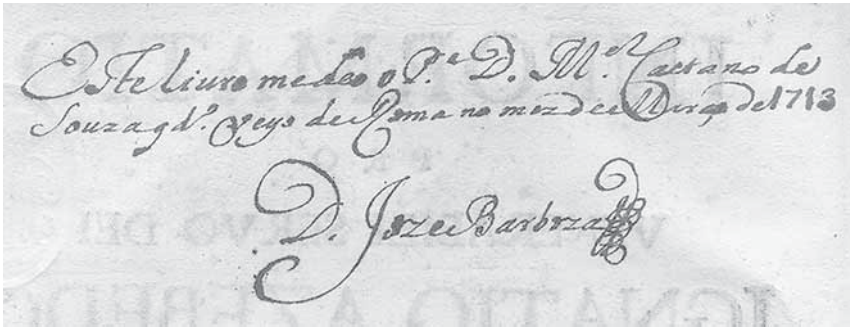 Este Liuro me deo o P.e D. M.el Caetano de
Souza q d.o veyo de Roma no mez de Março de 1713
D. Joze Barboza